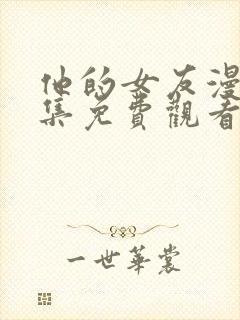 他的女友漫
集免費觀看
一世華裳